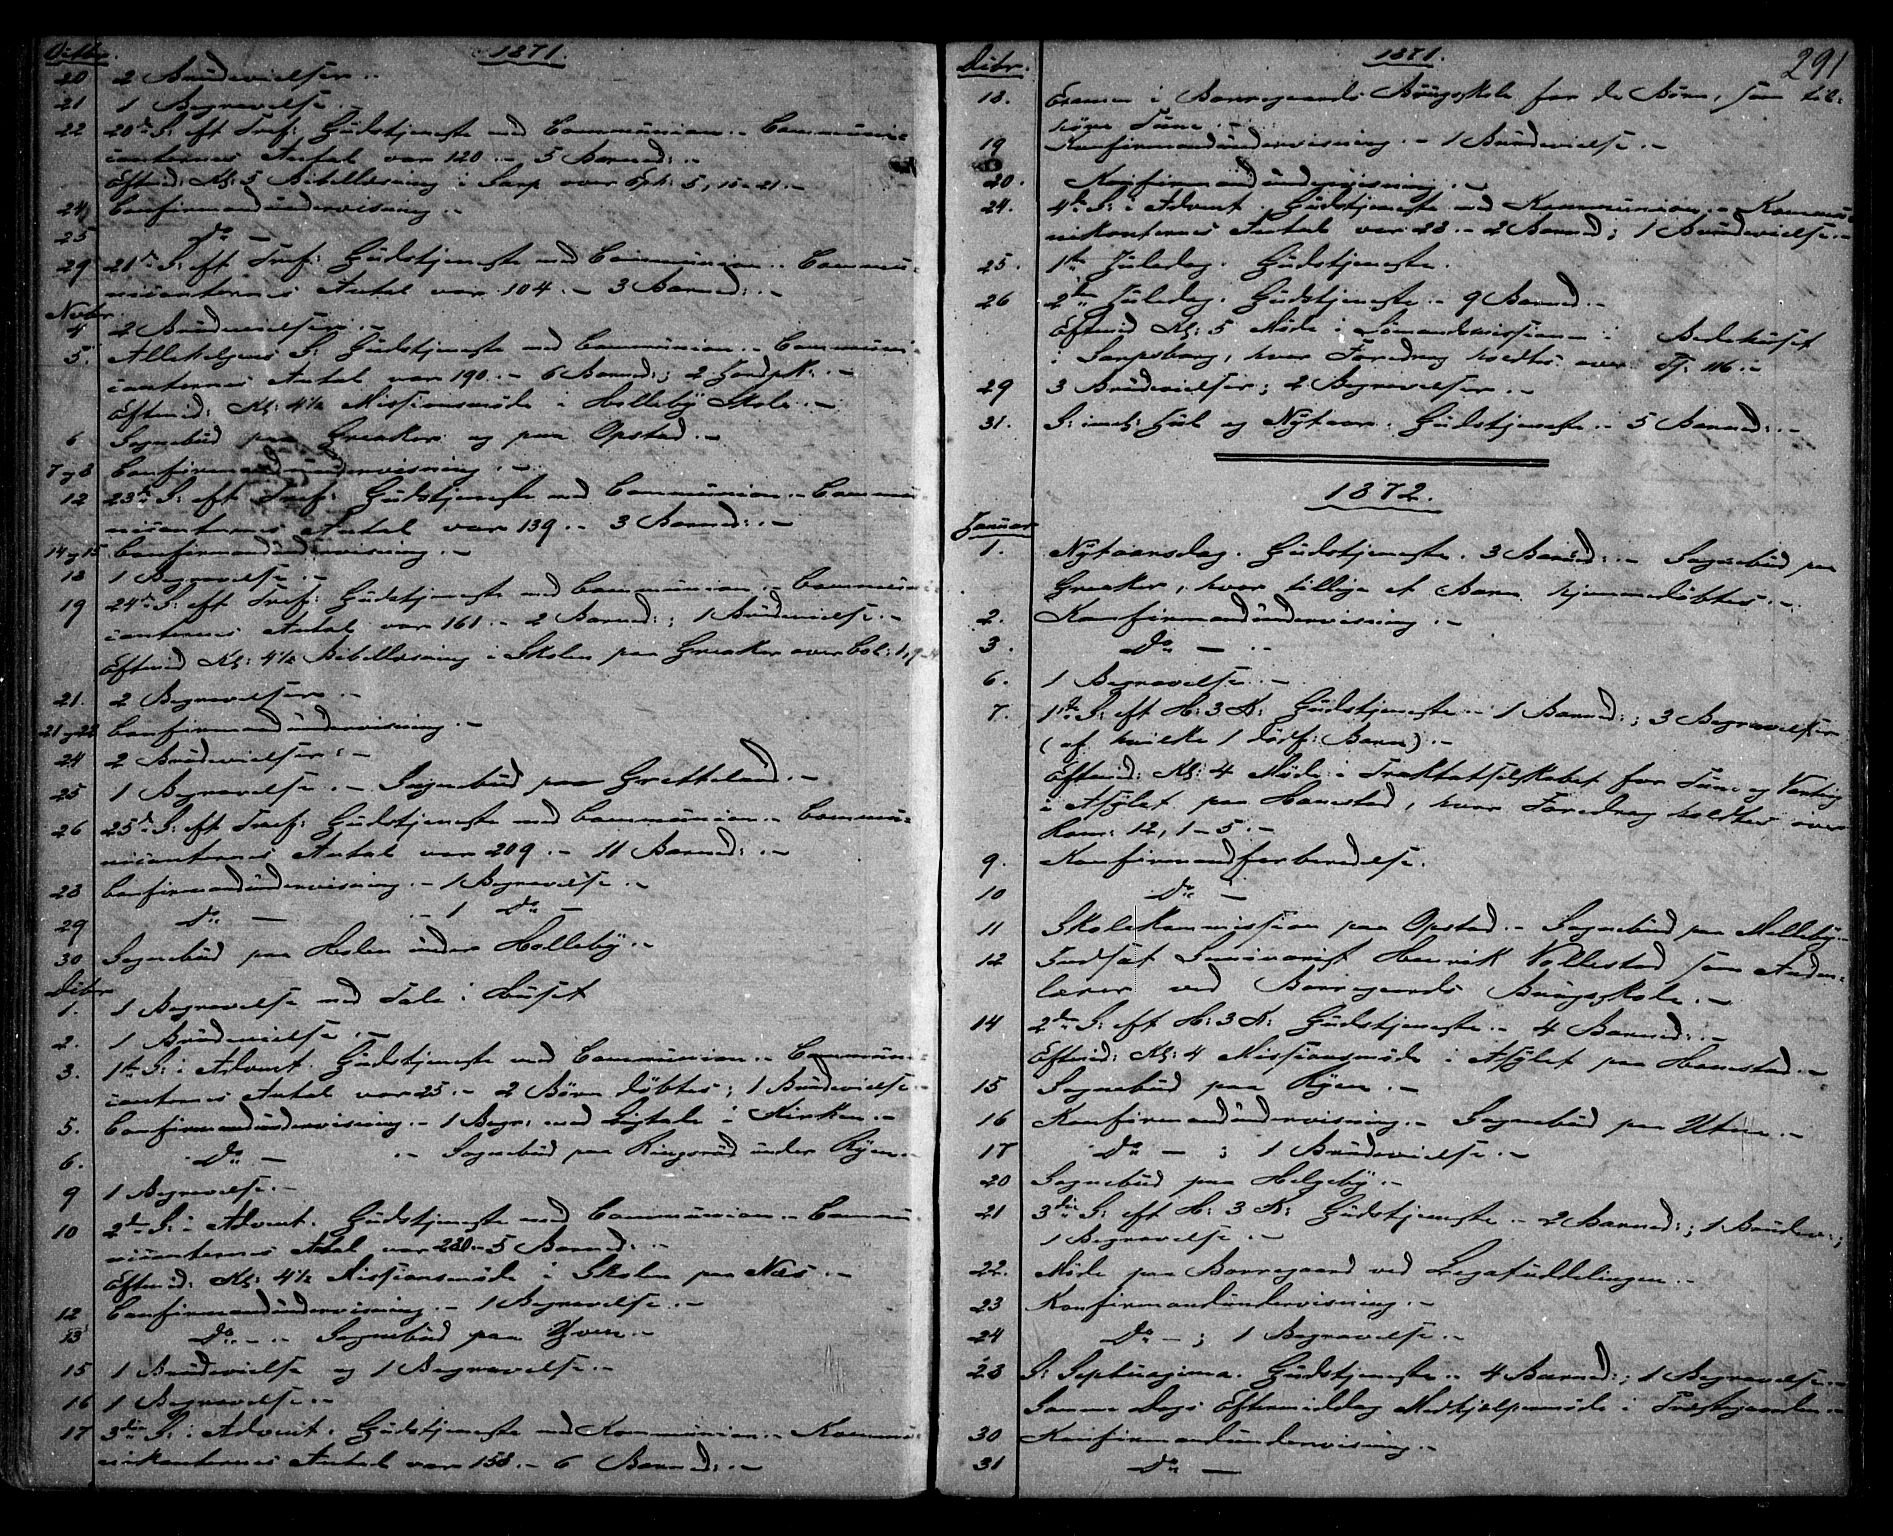 Octbr. 1871.
20 2 Brudevielser. -
21 1 Begravelse. -
22 20de S: eft Tref: Gudstjeneste med Communion. - Communi-
canternes Antal var 120. - 5 Barned: -
Eftmid: Kl: 5 Bibellæsning i Sarp over Eph: 5, 15-21. -
24 Confirmandundervisning. -
25 Do —
29 21de S: eft Tref: Gudstjeneste med Communion. - Commu-
nicanternes Antal var 104. - 3 Barned: -
Novbr.
4 2 Brudevielser. -
5. Allehelgens S: Gudstjeneste med Communion. - Communi-
canternes Antal var 190. - 6 Barned:; 2 Jordpk: -
Eftmid: Kl: 4½ Missionsmøde i Holleby Skole. -
6 Sognebud paa Greaker og paa Opstad. -
7 og 8 Confirmandundervisning. -
12 23de S: eft Tref: Gudstjeneste med Communion. - Commu-
nicanternes Antal var 139. - 3 Barned: -
14 og 15 Confirmandundervisning. -
18 1 Begravelse. -
19 24de S: eft Tref: Gudstjeneste med Communion. - Communi-
canternes Antal var 161. - 2 Barned:; 1 Brudevielse. -
Eftmid Kl: 4½ Bibellæsning i Skolen paa Greaker over Col: 1, 9-
21. 2 Begravelser. -
21 og 22 Confirmandundervisning. -
24 2 Brudevielser: -
25 1 Begravelse. - Sognebud paa Gretteland. -
26 25de S: eft Tref: Gudstjeneste med Communion. - Commu-
nicanternes Antal var 209. - 11 Barned: -
28 Confirmandundervisning. - 1 Begravelse. -
29 Do — . - 1 Do —
30 Sognebud paa Heslen under Holleby. -
Dcbr
1. 1 Begravelse med Tale i Huset
2. 1 Brudevielse. -
3. 1ste S: i Advent. Gudstjeneste med Communion. - Communi-
canternes Antal var 25. - 2 Børn døbtes; 1 Brudevielse. -
5. Confirmandundervisning. - 1 Begr: med Ligtale i Kirken. -
6. Do — . - Sognebud paa Ringsrud under Ryen. -
9 1 Begravelse. -
10 2den S: i Advent. Gudstjeneste med Communion. - Commu-
nicanternes Antal var 220. - 5 Barned: -
Eftmid: Kl: 4½ Missionsmøde i Skolen paa Næs. -
12 Confirmandundervisning. - 1 Begravelse. -
13 Do — . - Sognebud paa Yven. -
15 1 Brudevielse og 1 Begravelse. -
16 1 Begravelse. -
17 3die S: i Advent. Gudstjeneste med Kommunion. - Kommu-
nikanternes Antal var 158. - 6 Barned: -
Dcbr. 1871. 291
18. Examen i Borregaards Brugsskole for de Børn, som til-
høre Tune. -
19 Konfirmandundervisning. - 1 Brudevielse. -
20. Konfirmandundervisning. -
24. 4de S: i Advent. Gudstjeneste med Kommunion. - Kommu-
nikanternes Antal var 28. - 2 Barned; 1 Brudevielse. -
25. 1ste Juledag. Gudstjeneste.
26 2den Juledag. Gudstjeneste. - 9 Barned. -
Eftmid Kl: 5 Møde i Sømandsmissionen i Bedehuset
i Sarpsborg, hvor Foredrag holdtes over Ps. 116. -
29 3 Brudevielser; 2 Begravelser. -
31. S: mel: Jul og Nytaar. Gudstjeneste. - 5 Barned: -
1872.
Januar
1. Nytaarsdag. Gudstjeneste. 3 Barned: - Sognebud paa
Greaker, hvor tillige et Barn hjemmedøbtes. -
2. Konfirmandundervisning. -
3. Do — . -
6. 1 Begravelse. -
7. 1ste S: eft H: 3 K: Gudstjeneste. - 1 Barned:; 3 Begravelser
(af hvilke 1 dødf: Barn). -
Eftmid: Kl: 4 Møde i Traktatselskabet for Tune og Varteig
i Asylet paa Hannestad, hvor Foredrag holdtes over
Rom: 12, 1-5. -
9. Konfirmandforberedelse.
10 Do —
11 Skolekommission paa Opstad. - Sognebud paa Melleby. -
12 Indsat Seminarist Henrik Vollestad som Anden-
lærer ved Borregaards Brugsskole. -
14 2den S: eft H: 3 K: Gudstjeneste. - 4 Barned: -
Eftmid: Kl: 4 Missionsmøde i Asylet paa Hannestad. -
15 Sognebud paa Ryen. -
16 Konfirmandundervisning. - Sognebud paa Utne. -
17 Do — ; 1 Brudevielse. -
20 Sognebud paa Helgeby. -
21 3die S: eft H: 3 K: Gudstjeneste. - 2 Barned:; 1 Brudev:;
1 Begravelse. -
22. Møde paa Borregaard ved Legatuddelingen. -
23 Konfirmandundervisning. -
24 Do — ; 1 Begravelse. -
28 S: Septuagesima. Gudstjeneste. - 4 Barned:; 1 Begravelse. -
Samme Dags Eftermiddag Medhjælpermøde i Præstegaarden. -
30 Konfirmandundervisning. -
31 Do —